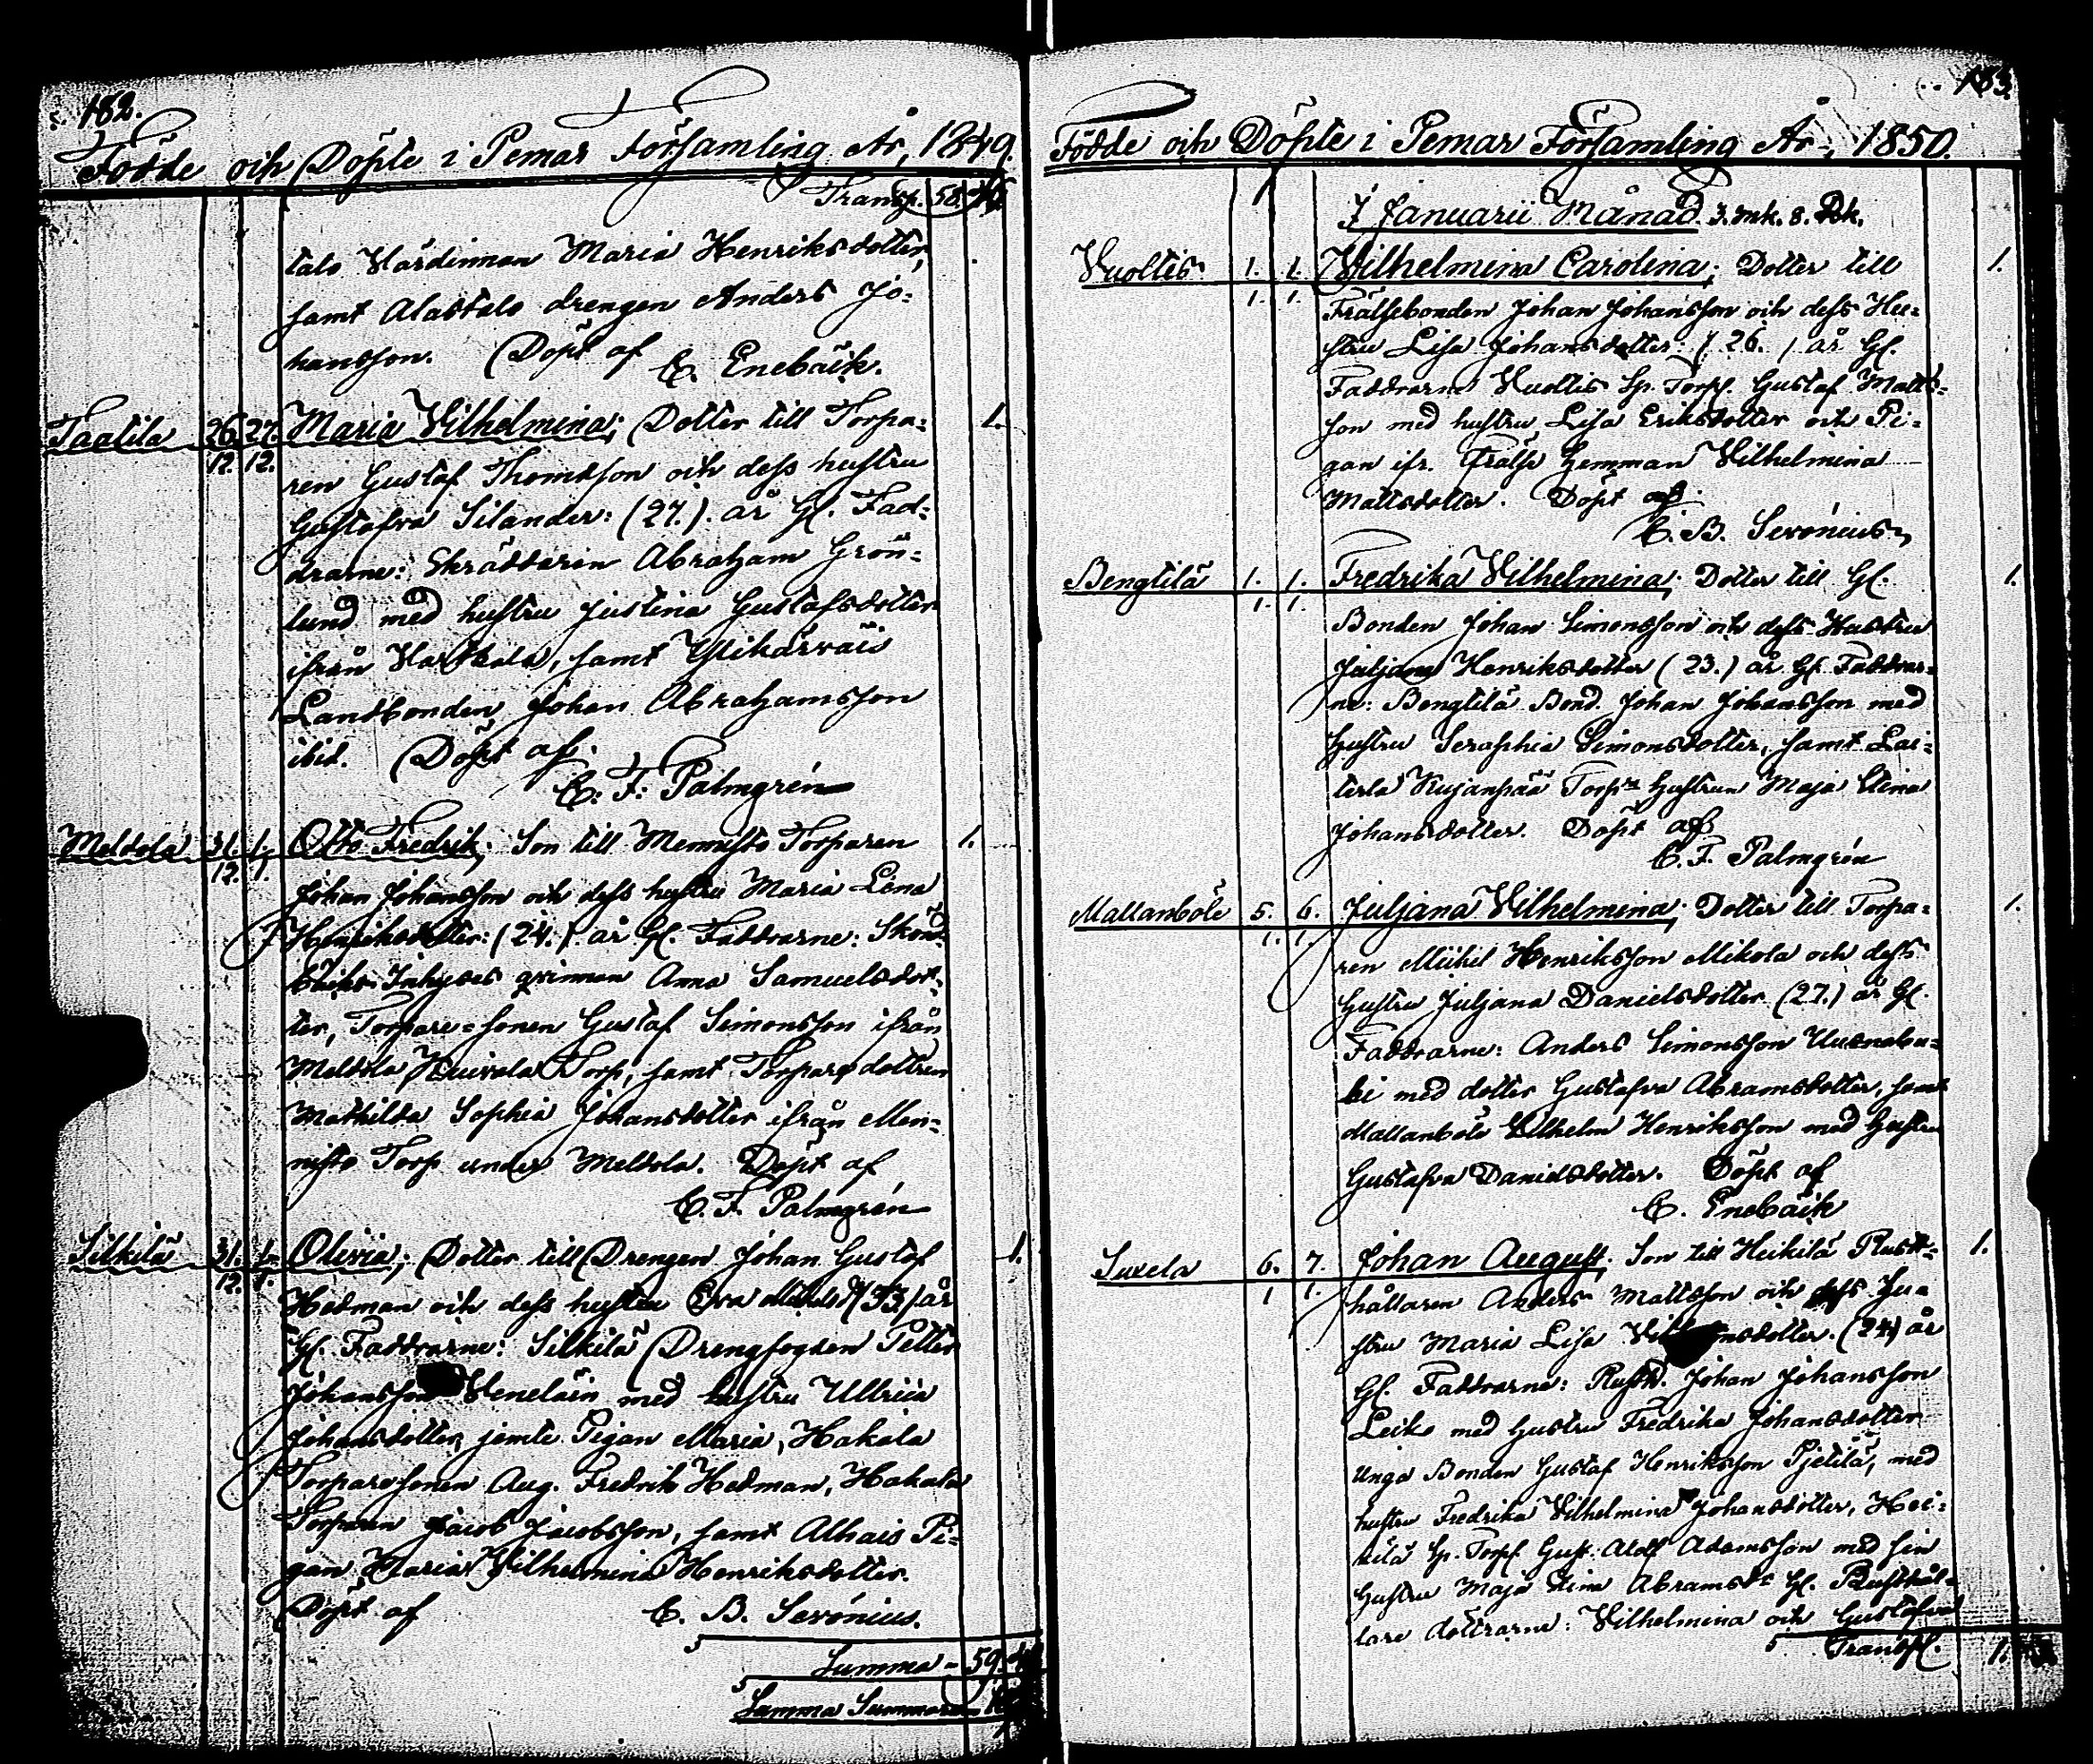 182.
Födde och Döpte i Pemar Församling År, 1849.
Transp. 58.
talo Värdinnan Maria Henriksdotter,
samt Alastalo drengen Anders Jo-
hansson. Döpt af
C. Enebäck.
Taatila 26. 27. Maria Vilhelmina; Dotter till Torpa- 1.
12. 12.
ren Gustaf Thomasson och dess hustru
Gustafva Silander: (27.). år Gl. Fad-
drarne: Skräddaren Abraham Grön-
lund med hustru Justina Gustafsdotter
ifrån Harvala, samt Ylikärväis
Landbonden Johan Abrahamsson
ibid. Döpt af.
C. F. Palmgrén
Meldola 31. 1. Otto Fredrik; Son till Mennisto Torparen 1.
12. 1.
Johan Johansson och dess hustru Maria Lena
Henriksdotter: (24.). år Gl. Faddrarne:
Inhyses qvinnan Anna Samuelsdot-
ter, Torpare-sonen Gustaf Simonsson ifrån
Meldola Huivala Torp, samt Torpare dottren
Mathilda Sophia Johansdotter ifrån Men-
nisto Torp under Meldola. Döpt af
C. F. Palmgrén
Silkilä 31. 1. Olivia; Dotter till Drengen Johan Gustaf 1.
12. 1.
Hedman och dess hustru Eva (33.) år
Gl. Faddrarne: Silkilä Drengfogden Petter
Johansson med hustru Ulrica
Johansdotter, jemte Pigan Maria, Hakala
Torparesonen Aug. Fredrik Hedman, Hakala
Torparen Jacob Jacobsson, samt Alhais Pi-
gan Maria Vilhelmina Henriksdotter.
Döpt af C. B. Serónius.
Summa - 59.
Summa Summarum
183.
Födde och Döpte i Pemar Församling År, 1850.
I Januarii Månad. 3. mk. 8.
Vuoltis 1. 1. Wilhelmina Carolina; Dotter till 1.
1. 1.
Frälsebonden Johan Johansson och dess Hu-
stru Lisa Johansdotter (26.) år Gl.
Faddrarne Vuoltis Sp. Torp. Gustaf Matts-
son med hustru Lisa Eriksdotter och Pi-
gan ifr. Frälse Hemman Vilhelmina
Mattsdotter. Döpt af.
C. B. Serónius
Bengtilä 1. 1. Fredrika Vilhelmina; Dotter till Gl. 1.
1. 1.
Bonden Johan Simonsson och dess Hustru
Juljana Henriksdotter (23.) år Gl. Faddrar-
ne: Bengtilä Bond. Johan Johansson med
Hustru Seraphia Simonsdotter, samt Lai-
terla Kujanpää Torp. hustrun Maja Stina
Johansdotter. Döpt af
C. F. Palmgrén
Mallanböle 5. 6. Juljana Vilhelmina; Dotter till Torpa- 1.
1. 1.
ren Mickel Henriksson Mikola och dess
Hustru Juljana Danielsdotter (27.) år Gl.
Faddrarne: Anders Simonsson
med dotter Gustafva Abramsdotter, samt
Mallanböle Vilhelm Henriksson med Hustru
Gustafva Danielsdotter. Döpt af
C. Enebäck
Suxela 6. 7. Johan August. Son till Heikilä Rust- 1.
1 1.
hållaren Anders Mattsson och dess Hu-
stru Maria Lisa (24) år
Gl. Faddrarne: Rusth. Johan Johansson
Leiko med Hustru Fredrika Johansdotter
Unga Bonden Gustaf Henriksson Pjetilä, med
hustru Fredrika Vilhelmina Johansdotter, Hei-
kilä Sp. Torp. Gust. Adolf Adamsson med sin
Hustru Maja Stina Abramsdr Gl. Rusthål-
lare döttrarne: Vilhelmina och Gustafva
Transp. 1.